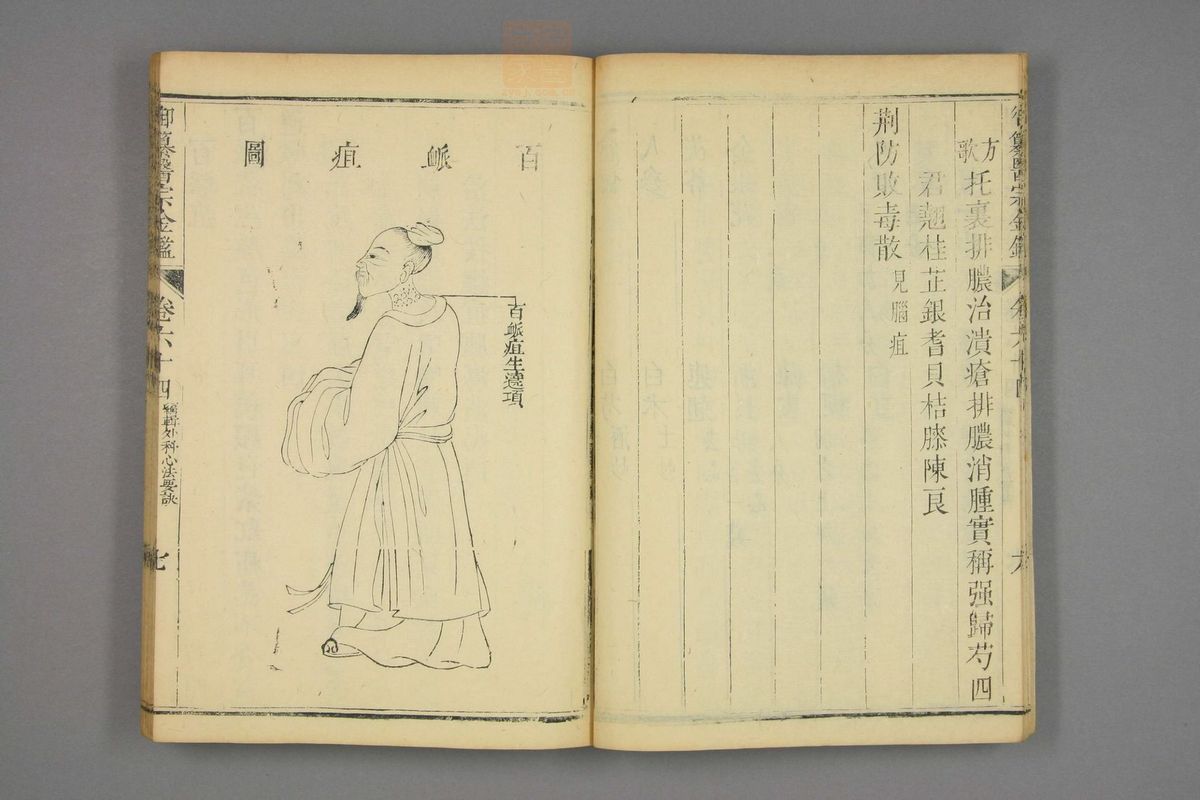 方歌 托裏排膿治潰瘡排膿消腫實稱强歸芍四
君翹桂芷銀耆貝桔膝陳良
荆防敗毒散 見腦疽
卷六十四
六
百䘐疽圖
百䘐疽生遶項
御纂醫宗金鑑
卷六十四
編輯外科心法要訣
七